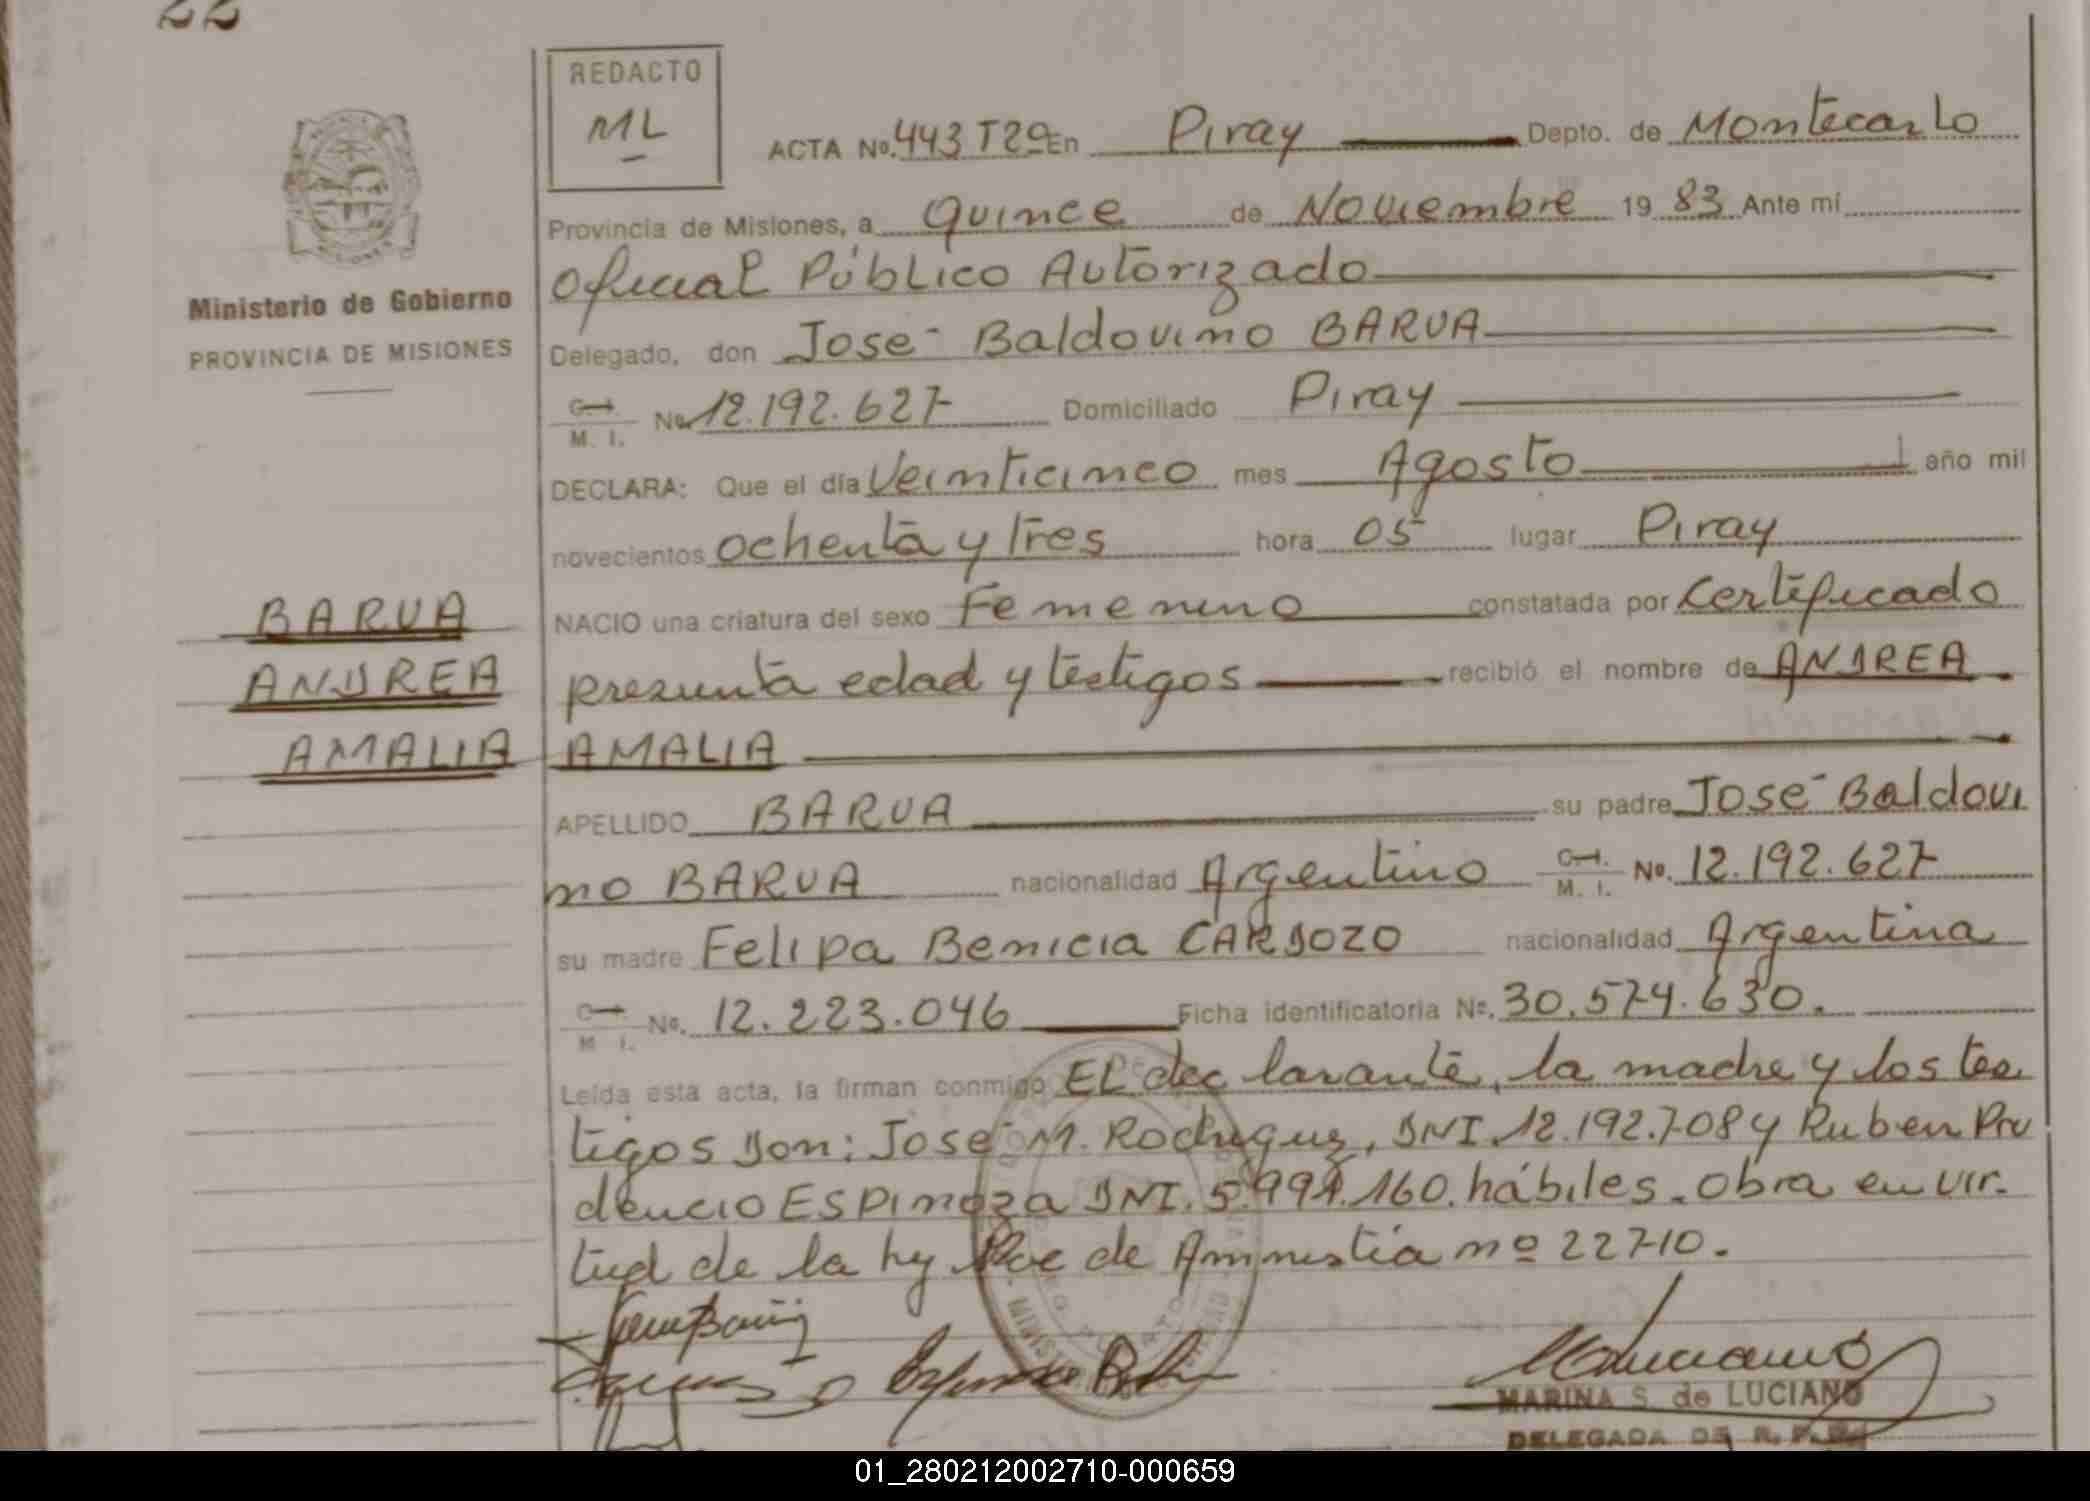 22
REDACTO
ML
ACTA Nº. 443 T2º En Piray Depto. de Montecarlo
Provincia de Misiones, a quince de Noviembre 19 83 Ante mí
Oficial Público Autorizado
Ministerio de Gobierno
PROVINCIA DE MISIONES
Delegado, don José Baldovino BARUA
C. I.
M. I. Nº 12.192.627 Domiciliado Piray
DECLARA: Que el día Veinticinco mes Agosto año mil
novecientos ochenta y tres hora 05 lugar Piray
BARUA
ANDREA
AMALIA
NACIO una criatura del sexo Femenino constatada por Certificado
presunta edad y testigos recibió el nombre de ANDREA
AMALIA
APELLIDO BARUA su padre José Baldovi
no BARUA nacionalidad Argentino C. I. M. I. Nº. 12.192.627
su madre Felipa Benicia CARDOZO nacionalidad Argentina
C. I. M. I. Nº. 12.223.046 Ficha identificatoria Nº. 30.574.630.
Leída esta acta, la firman conmigo El declarante, la madre y los tes
tigos Don: José M. Rodriguez, DNI 12.192.708 y Ruben Pru
dencio ESPINOZA DNI. 5.991.160. hábiles. Obra en vir
tud de la ley de Amnistía nº 22710.
MARINA S. de LUCIANO
DELEGADA DE R. P. P.
01_280212002710-000659